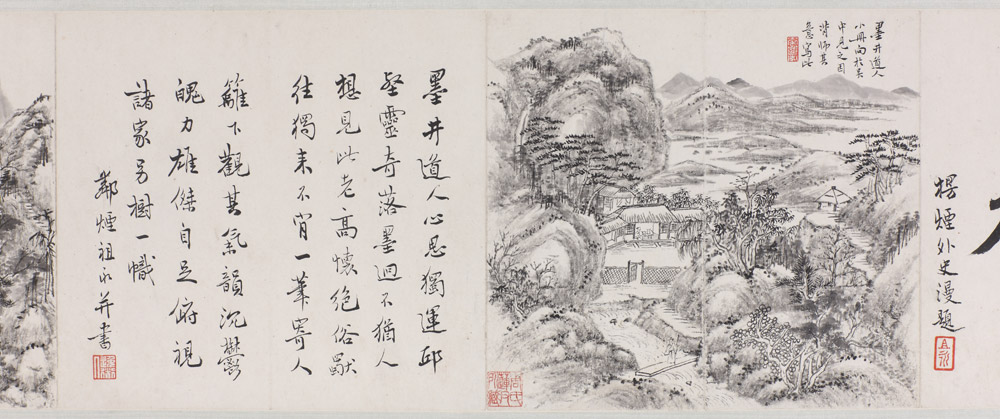 楞煙外史漫題
墨井道人
小冊向於吳
中見之因
背師其
意寫此
墨井道人心思獨運邱
壑靈奇落墨迥不猶人
想見此老高懷絕俗
往獨來不肯一筆寄人
籬下觀其氣韻沉鬱
魄力雄傑自足俯視
諸家另樹一幟
鄰煙祖永并書